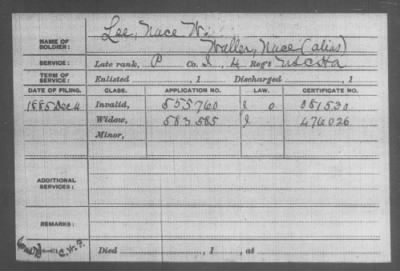 NAME OF SOLDIER: Lee, Nace W.
Waller, Nace (alias)
SERVICE: Late rank, P Co. I, 4 Reg't U.S.C.H.A.
TERM OF SERVICE: Enlisted , 1 Discharged , 1
DATE OF FILING. CLASS. APPLICATION NO. LAW. CERTIFICATE NO.
1885 Dec 4 Invalid, 555760 0 351530
Widow, 583585 476026
Minor,
ADDITIONAL SERVICES:
REMARKS:
C.W.F. Died , 1 , at